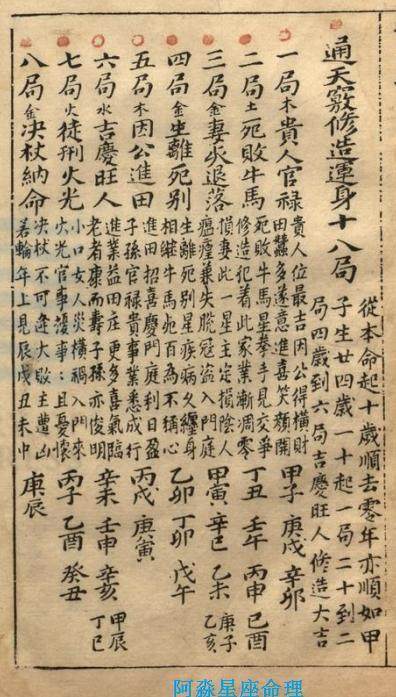 通天竅修造運身十八局
從本命起十歲順去零年亦順如甲
子生廿四歲一十起一局二十到二
局四歲到六局吉慶旺人修造大吉
一局木貴人官祿
貴人位最吉因公得橫財
田蠶多遂意進喜笑顏開
甲子 庚戌 辛卯
二局土死敗牛馬
死敗牛馬星擧手見交爭
修造犯着此家業漸凋零
丁丑 壬午 丙申 己酉
三局金妻夾退落
損妻此一星主定損陰人
瘟瘽兼失脫冦盜入門庭
甲寅 辛巳 乙未 庚子
乙亥
四局金生離死别
生離死别星疾病久纏身
相継牛馬死百為不稱心
乙卯 丁卯 戊午
五局木因公進田
進田招喜慶門庭利日盈
子孫官祿貴事業悉成行
丙戌 庚寅
六局水吉慶旺人
進業益田庄更多喜氣臨
老者康而壽子孫亦俊明
辛未 壬申 辛亥 甲辰
丁巳
七局火徒刑火光
小口女人災橫禍入門來
火光官事擾事事且憂懷
丙子 乙酉 癸丑
八局金决杖納命
决杖不可逢大敗主遭凶
若輪年上見辰戌丑未中
庚辰
阿淼星座命理